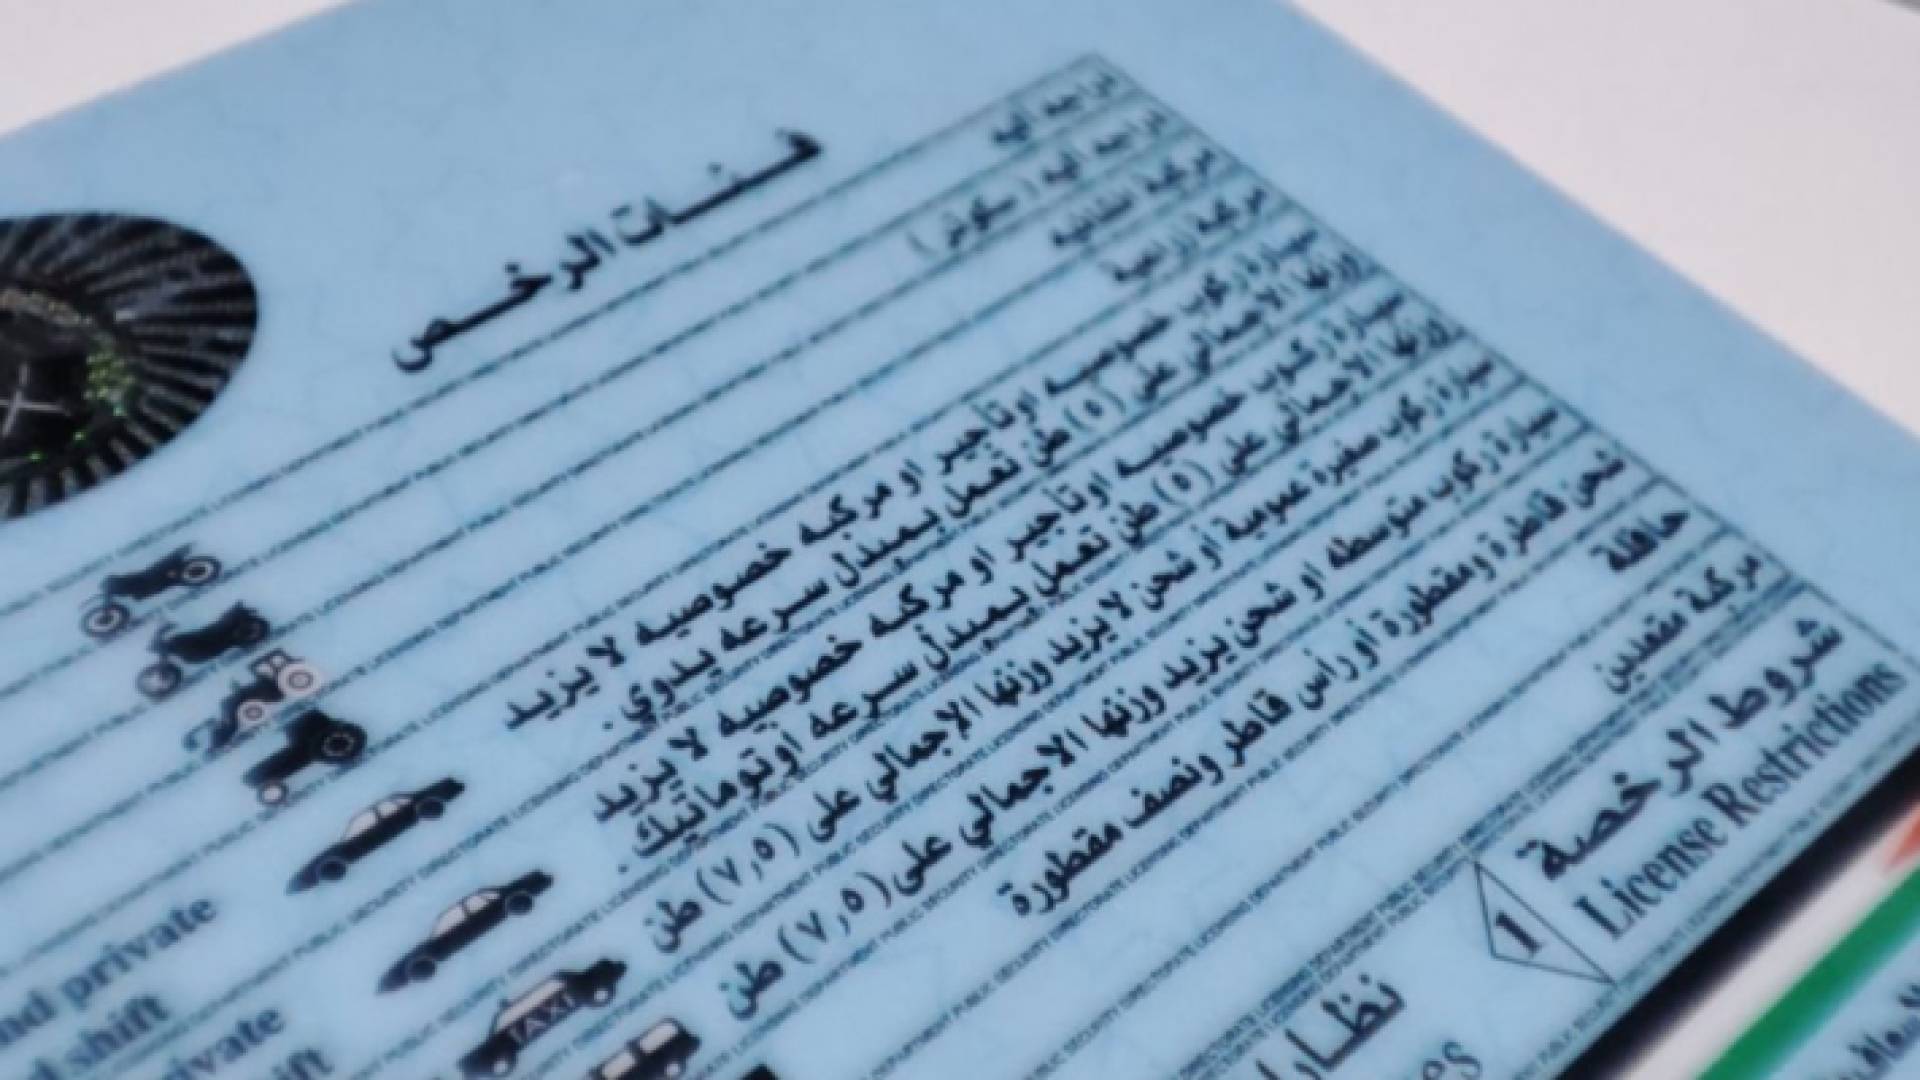 فئات الرخص
دراجة آلية
دراجة آلية ( سكوتر )
مركبة انشائية
مركبة زراعية
سيارة ركوب خصوصيه اوتأجير او مركبه خصوصيه لا يزيد
وزنها الاجمالي على (٥) طن تعمل بمبدل سرعه يدوي .
سيارة ركوب خصوصيه اوتأجير او مركبه خصوصيه لا يزيد
وزنها الاجمالي على (٥) طن تعمل بمبدل سرعه اوتوماتيك .
سيارة ركوب صغيرة عمومية أو شحن لا يزيد وزنها الاجمالي على (٧,٥) طن
سيارة ركوب متوسطه او شحن يزيد وزنها الاجمالي على (٧,٥) طن
شحن قاطرة ومقطورة أو رأس قاطر ونصف مقطورة
حافلة
مركبة مقعدين
شروط الرخصة
License Restrictions
1
TAXI
and private
shift
private